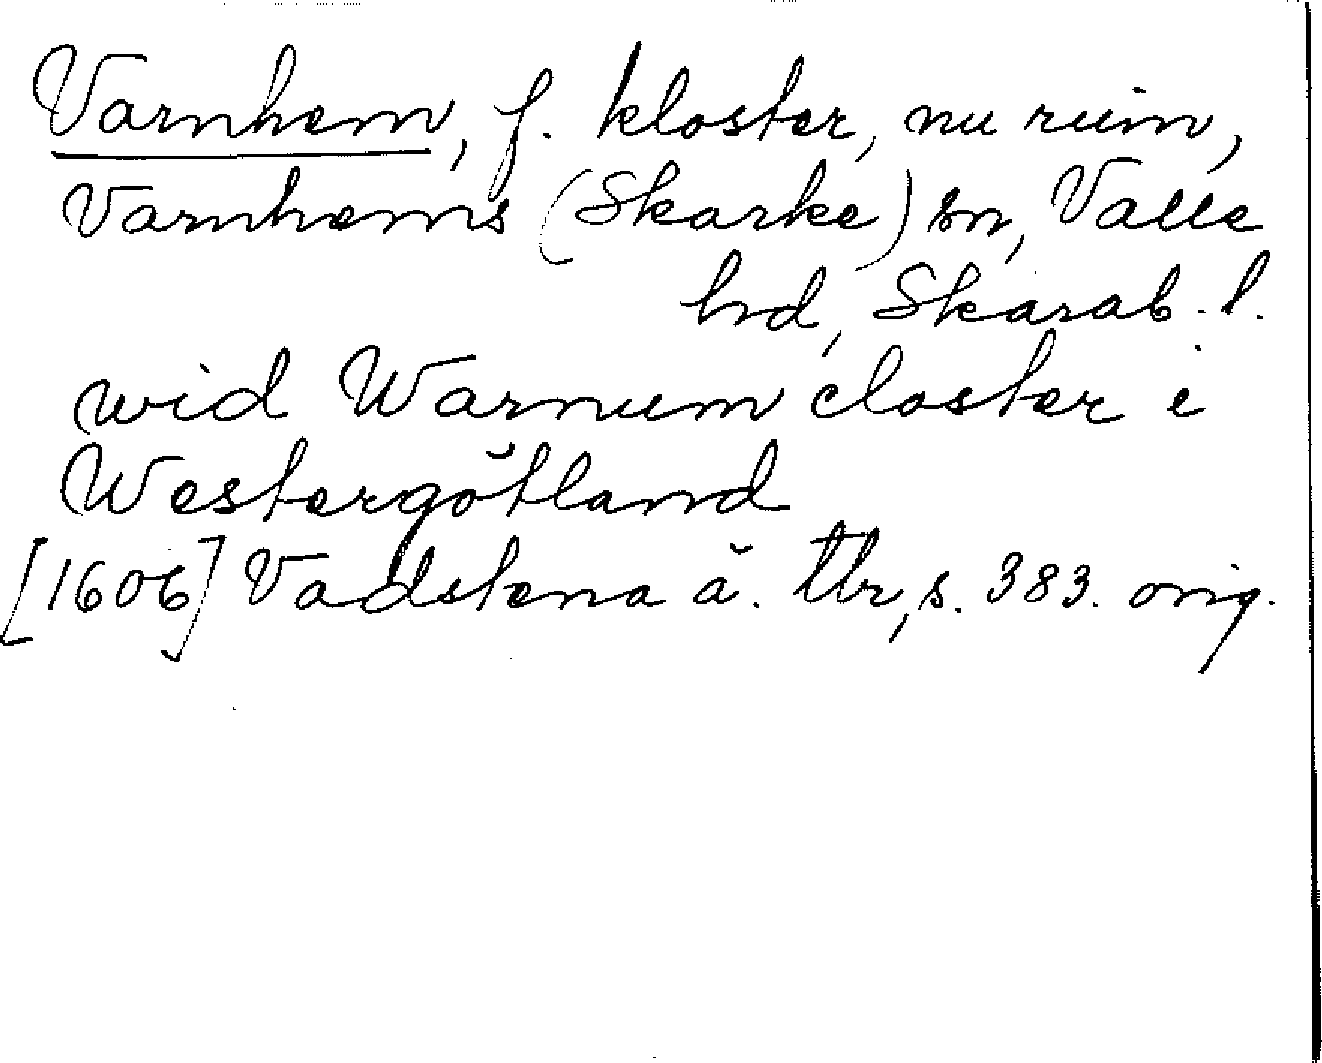 Varnhem, f. kloster, nu ruin,
Varnhems (Skarke) sn, Valle
hd, Skarab. l.
wid Warnum closter i
Westergötland
[1606] Vadstena ä. tbr, s. 383. orig.